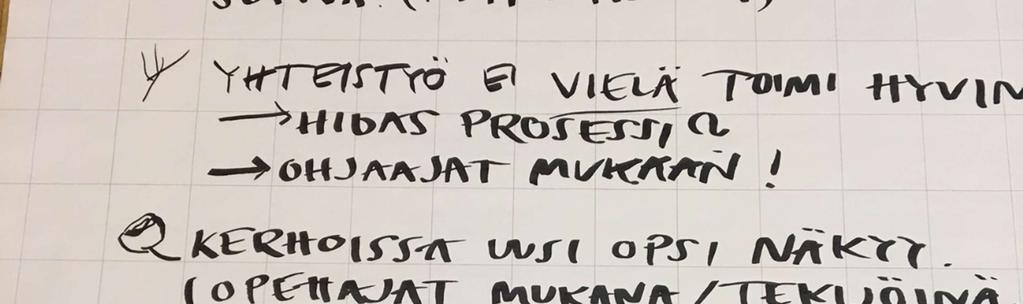 YHTEISTYÖ EI VIELÄ TOIMI HYVIN
→ HIDAS PROSESSI
→ OHJAAJAT MUKAAN!
KERHOISSA UUSI OPSI NÄKYY.
(OPETTAJAT MUKANA/TEKIJÖINÄ